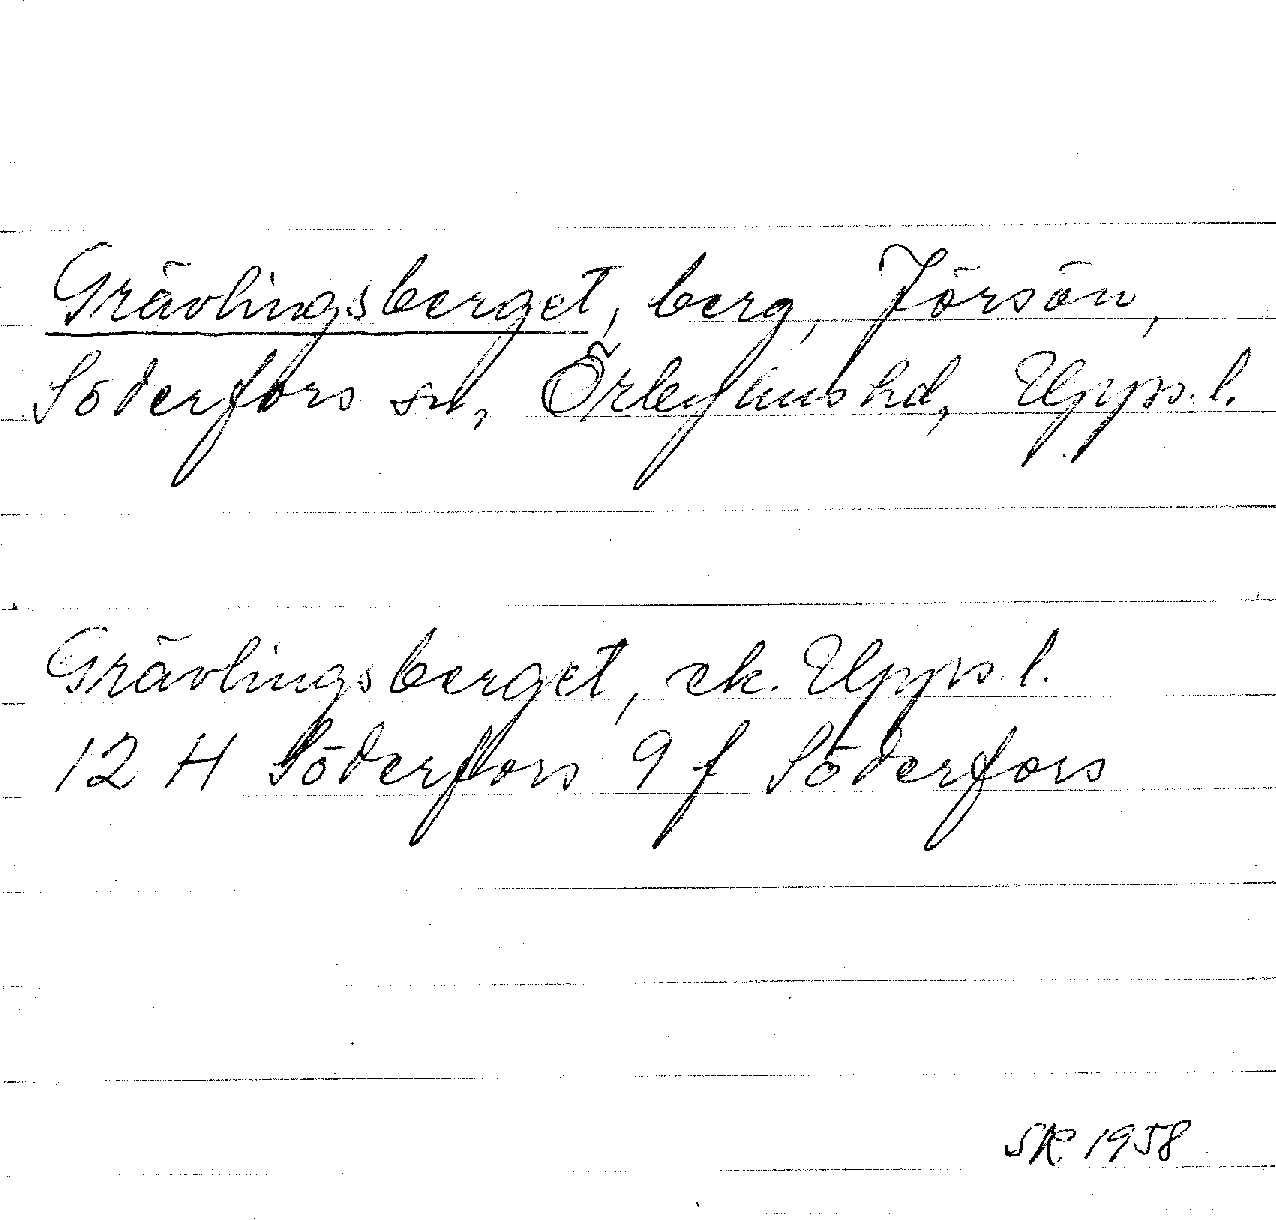 Grävlingsberget, berg, Jörsön,
Söderfors sn, Örbyhus hd, Upps. l.
Grävlingsberget, ek. Upps. l.
12 H Söderfors 9 f Söderfors
SR. 1958